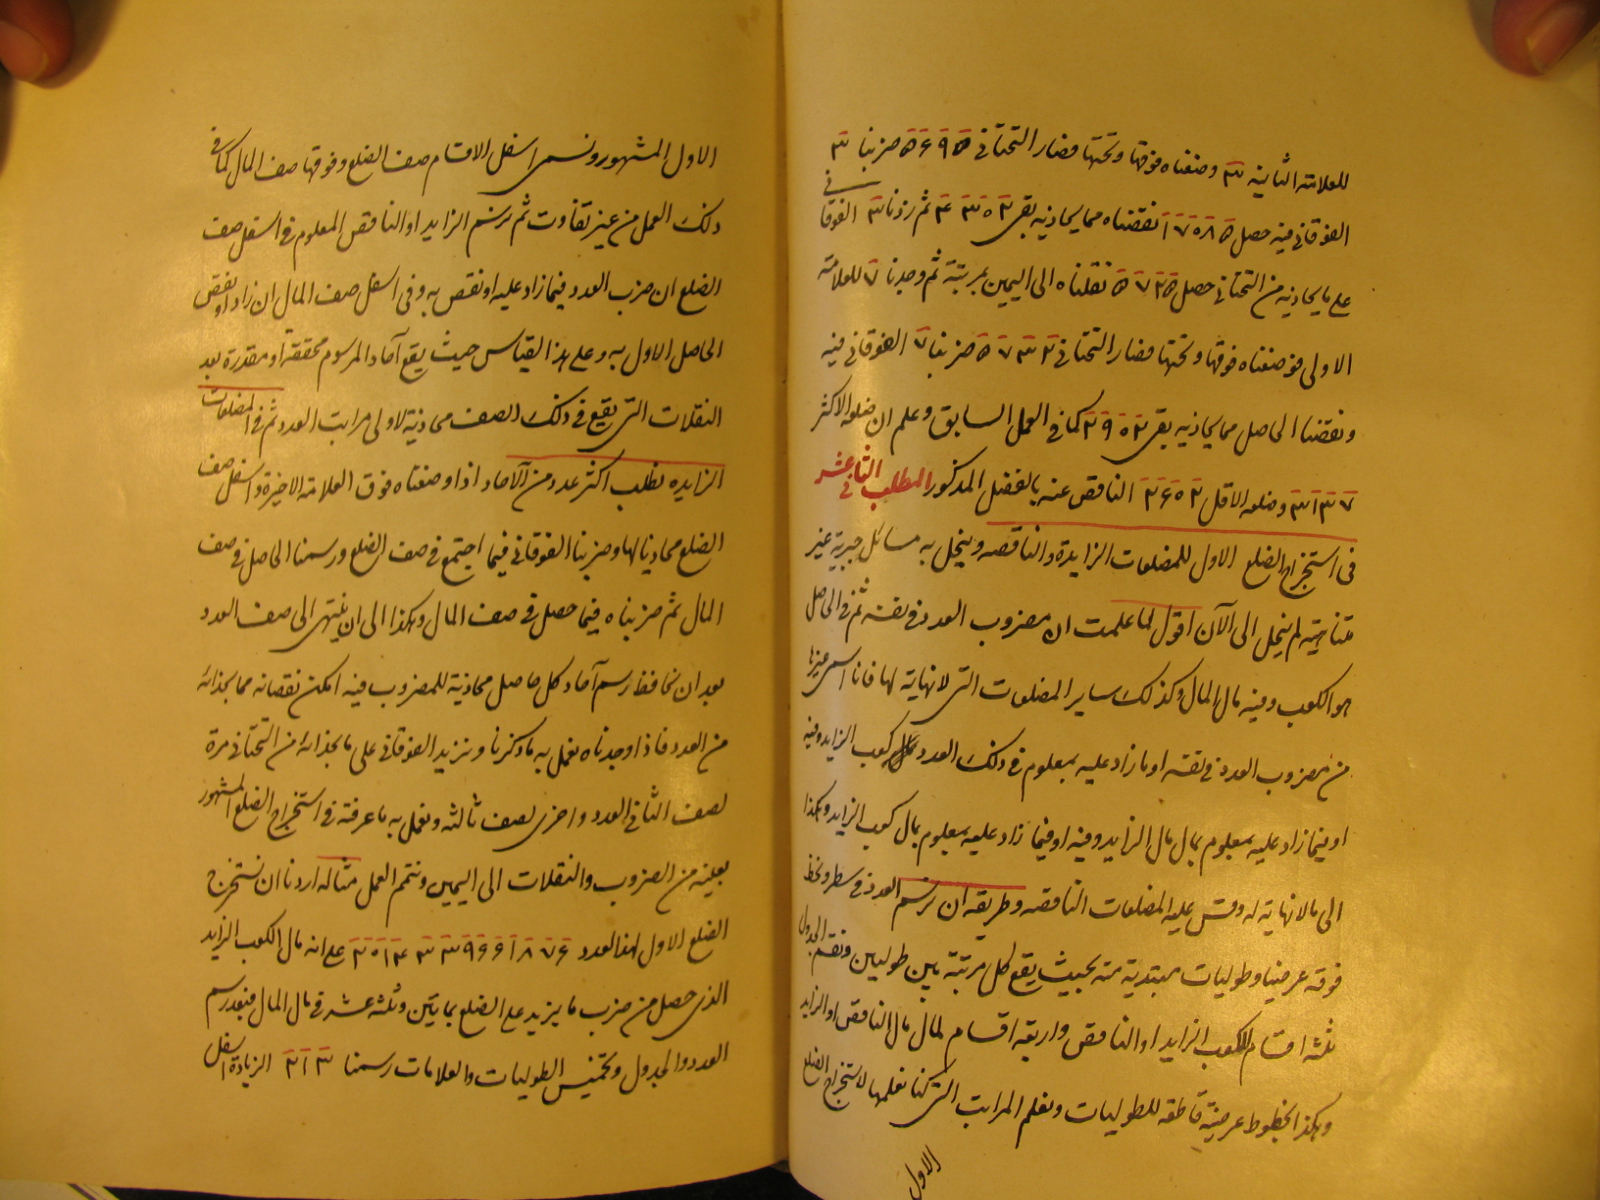 للعلامة الثانية ٣ وضعناه فوقها وتحتها فصار التحتانى ٥٦٩٥ ضربنا ٣
الفوقانى فيه حصل ١٧٠٨٥ نقصناه مما يحاذيه بقى ٤٣٠٢ ثم زدنا ٣ الفوقانى
على ما يحاذيه من التحتانى حصل ٥٧٢٥ نقلناه الى اليمين بمرتبة ثم وجدنا ٧ للعلامة
الاولى فوضعناه فوقها وتحتها فصار التحتانى ٥٧٣٢ ضربنا ٧ الفوقانى فيه
ونقصنا الحاصل مما يحاذيه بقى ٢٩٠٢ كما فى العمل السابق وعلم ان ضلعه الاكثر
٣١٣٧ وضلعه الاقل ٢٦٠٢ الناقص عنه بالفضل المذكور المطلب الثانى عشر
فى استخراج الضلع الاول للمضلعات الزايدة والناقصه وينحل به مسائل جبرية غير
متناهية لم ينحل الى الآن اقول لما علمت ان مضروب العدد فى نفسه ثم فى الحاصل
هو الكعب وفيه مال المال وكذلك ساير المضلعات التى لا نهاية لها فانا اسمى غيرها
من مضروب العدد فى نفسه او ما زاد عليه بمعلوم فى ذلك العدد كعب الزايد وفيه
او فيما زاد عليه بمعلوم بمال مال الزايد وفيه او فيما زاد عليه بمعلوم بمال كعب الزايد وهكذا
الى ما لا نهاية له وقس عليه المضلعات الناقصه وطريقه ان نرسم العدد فى سطر ونخط
فوقه عرضيا وطوليات مبتدية منه بحيث يقع كل مرتبة بين طوليين ونقسم الجدول
ثلثه اقسام للكعب الزايد او الناقص واربعه اقسام لمال مال الناقص او الزايد
وهكذا بخطوط عرضية قاطعه للطوليات ونعلم المراتب التى كنا نعلمها لاستخراج الضلع
الاول
الاول المشهور ونسمى اسفل الاقسام صف الضلع وفوقها صف المال كما فى
ذلك العمل من غير تفاوت ثم نرسم الزايد او الناقص المعلوم فى اسفل صف
الضلع ان ضرب العدد فيما زاد عليه او نقص به وفى اسفل صف المال ان زاد او نقص
الحاصل الاول به وعلى هذا القياس حيث يقع آحاد المرسوم محققة او مقدرة بعد
النقلات التى يقع فى ذلك الصف محاذية لاولى مراتب العدد ثم فى المضلعات
الزايده نطلب اكثر عدد من الآحاد اذا وضعناه فوق العلامة الاخيرة واسفل صف
الضلع محاذيا لها وضربنا الفوقانى فيما اجتمع فى صف الضلع ورسمنا الحاصل فى صف
المال ثم ضربناه فيما حصل فى صف المال وهكذا الى ان ينتهى الى صف العدد
بعد ان نحافظ رسم آحاد كل حاصل محاذية للمضروب فيه امكن نقصانه مما بحذائه
من العدد فاذا وجدناه نعمل به ما ذكرنا ونزيد الفوقانى على ما بحذائه من التحتانى مرة
لصف الثانى العدد واخرى لصف ثالثه ونعمل به ما عرفته فى استخراج الضلع المشهور
بعينه من الضروب والنقلات الى اليمين ونتمم العمل مثاله اردنا ان نستخرج
الضلع الاول لهذا العدد ٢٠١٤٣٣٩٦٦١٨٧٦ على انه مال الكعب الزايد
الذى حصل من ضرب ما يزيد على الضلع بمايتين وثلثة عشر فى مال المال فبعد رسم
العدد والجدول وتخميس الطوليات والعلامات رسمنا ٢١٣ الزيادة اسفل